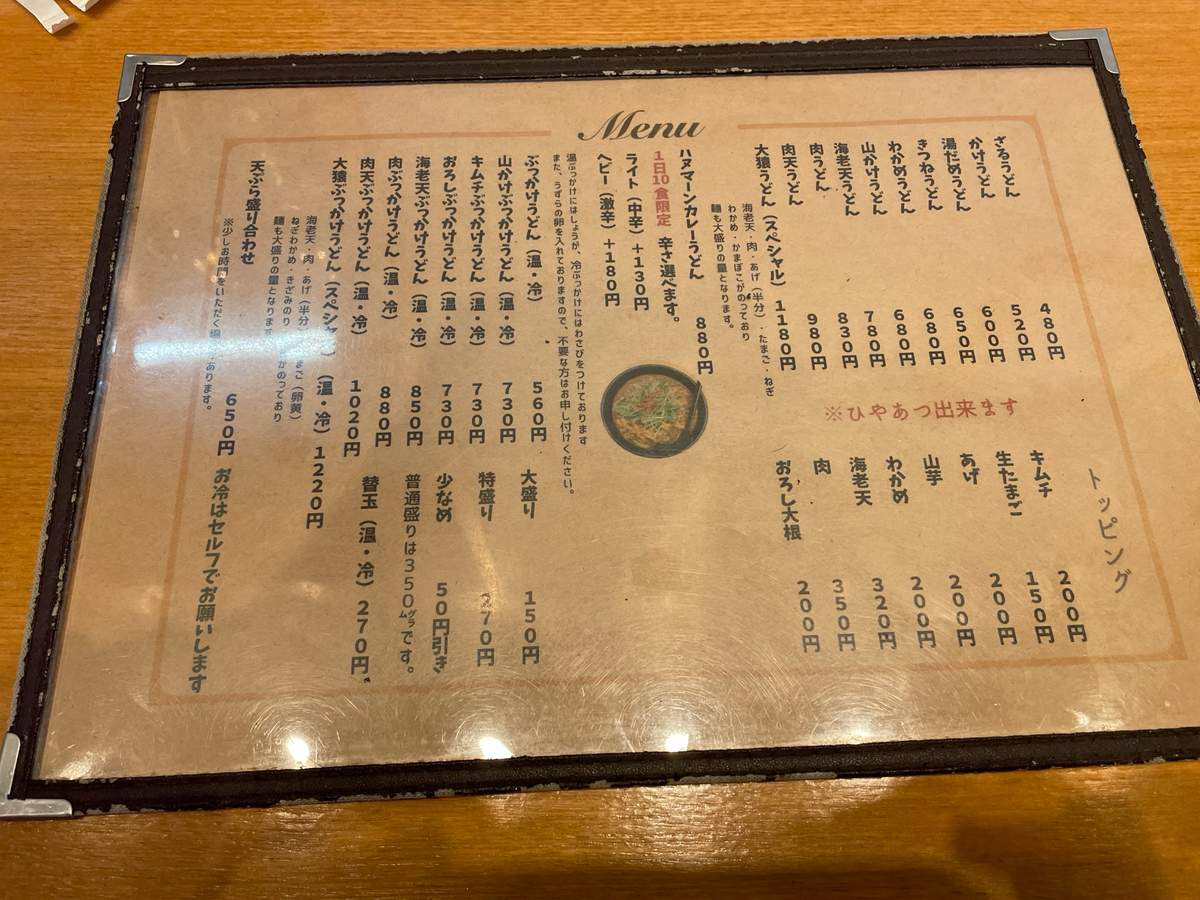 Menu
ざるうどん 480円
かけうどん 520円
湯だめうどん 600円
きつねうどん 650円
わかめうどん 680円
山かけうどん 680円
海老天うどん 780円
肉うどん 830円
肉天うどん 980円
大猿うどん（スペシャル） 1180円
海老天・肉・あげ（半分）・たまご・ねぎ
わかめ・かまぼこがのっており
麺も大盛りの量となります。
※ひやあつ出来ます
トッピング
キムチ 200円
生たまご 150円
あげ 200円
山芋 200円
わかめ 200円
海老天 320円
肉 350円
おろし大根 200円
ハヌマーンカレーうどん 880円
1日10食限定 辛さ選べます。
ライト（中辛）＋130円
ヘビー（激辛）＋180円
温ぶっかけにはしょうが、冷ぶっかけにはわさびをつけております
また、うずらの卵を入れておりますので、不要な方はお申し付けください。
ぶつかけうどん（温・冷） 560円
山かけぶつかけうどん（温・冷） 730円
キムチぶつかけうどん（温・冷） 730円
おろしぶつかけうどん（温・冷） 730円
海老天ぶつかけうどん（温・冷） 850円
肉ぶつかけうどん（温・冷） 880円
肉天ぶつかけうどん（温・冷） 1020円
大猿ぶつかけうどん（スペシャル）（温・冷） 1220円
海老天・肉・あげ（半分）まご（卵黄）
ねぎわかめ・きざみのり かのっており
麺も大盛りの量となります
大盛り 150円
特盛り 270円
少なめ 50円引き
普通盛りは350グラムです。
替玉（温・冷） 270円
天ぷら盛り合わせ 650円
※少しお時間をいただく場 あります。
お冷はセルフでお願いします